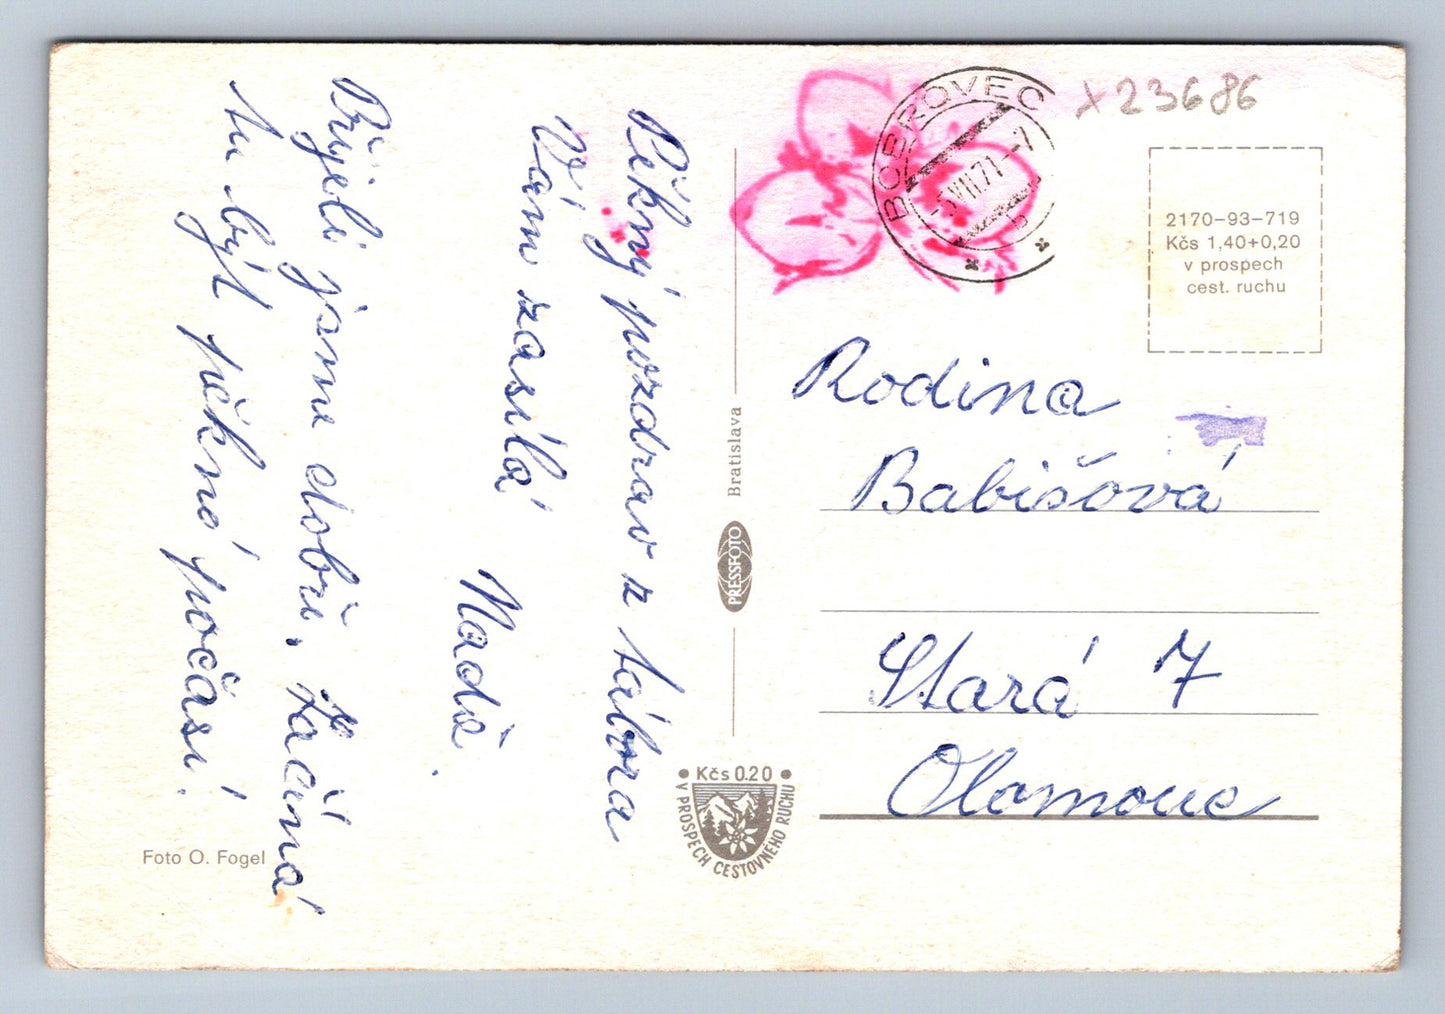 Pěkný pozdrav z tábora
Vám zasílá
Naďa.
Přijeli jsme dobře. Začíná
tu být pěkné počasí.
Foto O. Fogel
Bratislava
PRESSFOTO
Kčs 0.20
V PROSPECH CESTOVNÉHO RUCHU
BOBROVEC
VIII.71--7
b
x23686
2170-93-719
Kčs 1,40+0,20
v prospech
cest. ruchu
Rodina
Babišová
Stará 7
Olomouc